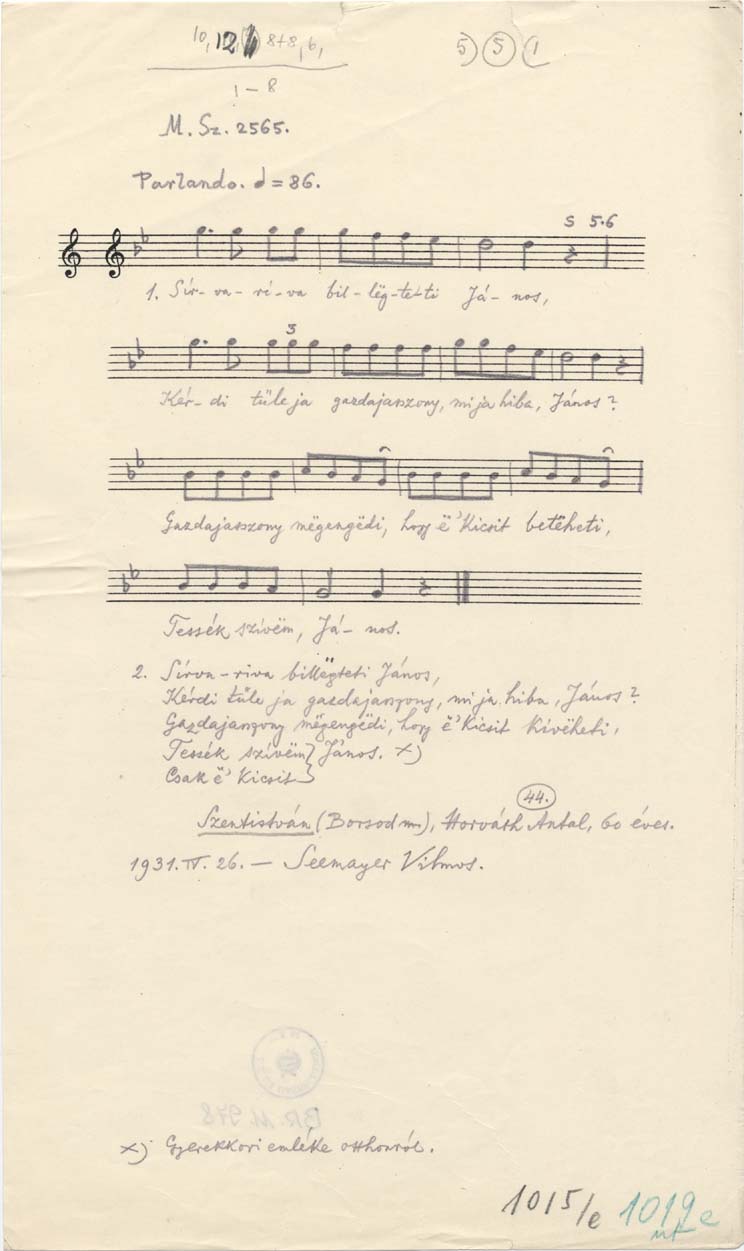 10, 12 8+8, 6,
5 5 1
1 – 8
M. Sz. 2565.
Parlando. ♩= 86.
S 5.6
1. Sír- va- rí-va bil-lëg-te-ti Já- nos,
3
Kér-di tüle ja gazdajasszony, mi ja hiba, János?
Gazdajasszony mëgengëdi, hogy ë' Kicsit betëheti,
Tessék szívëm, Já- nos.
2. Sírva-riva billëgteti János,
Kérdi tüle ja gazdajasszony, mi ja hiba, János?
Gazdajasszony mëgengëdi, hogy ë' Kicsit kivëheti,
Tessék szívëm} János. x)
Csak ë' Kicsit}
44.
Szentistván (Borsod m.), Horváth Antal, 60 éves.
1931. IV. 26. — Seemayer Vilmos.
BR. 11.978
x) Gyerekkori emléke otthonról.
1015/e 1019e